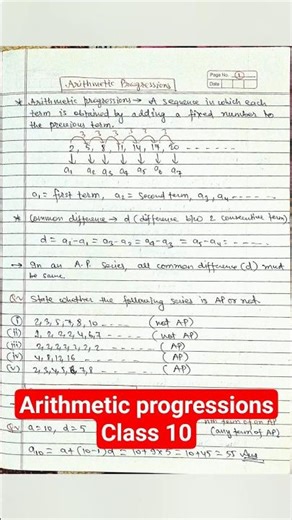 Page No. 1
Date
Arithmetic Progressions
* Arithmetic progressions → A sequence in which each
term is obtained by adding a fixed number to
the previous term.
3 3 3 3 3 3
2, 5, 8, 11, 14, 17, 20 - - - - - -
a₁ a₂ a₃ a₄ a₅ a₆ a₇
a₁ = first term, a₂ = second term, a₃, a₄ - - - - -
* Common difference → d (difference b/w 2 consecutive term)
d = a₂-a₁ = a₃-a₂ = a₄-a₃ = a₅-a₄ = - - - - -
→ In an A.P. series, all common difference (d) must
be same.
State whether the following series is AP or not.
(i) 2, 3, 5, 7, 8, 10 - - - - (not AP)
(ii) 2, 2, 2, 2, 4, 6, 7 - - - - (not AP)
(iii) (AP)
(iv) 4, 8, 12, 16 - - - - - (AP)
(v) 2, 3, 4, 5, 6, 7, 8 - - - - (AP)
Arithmetic progressions
Class 10
a = 10, d = 5
(any term of AP)
a₁₀ = a + (10-1)d = 10 + 9×5 = 10 + 45 = 55 Ans